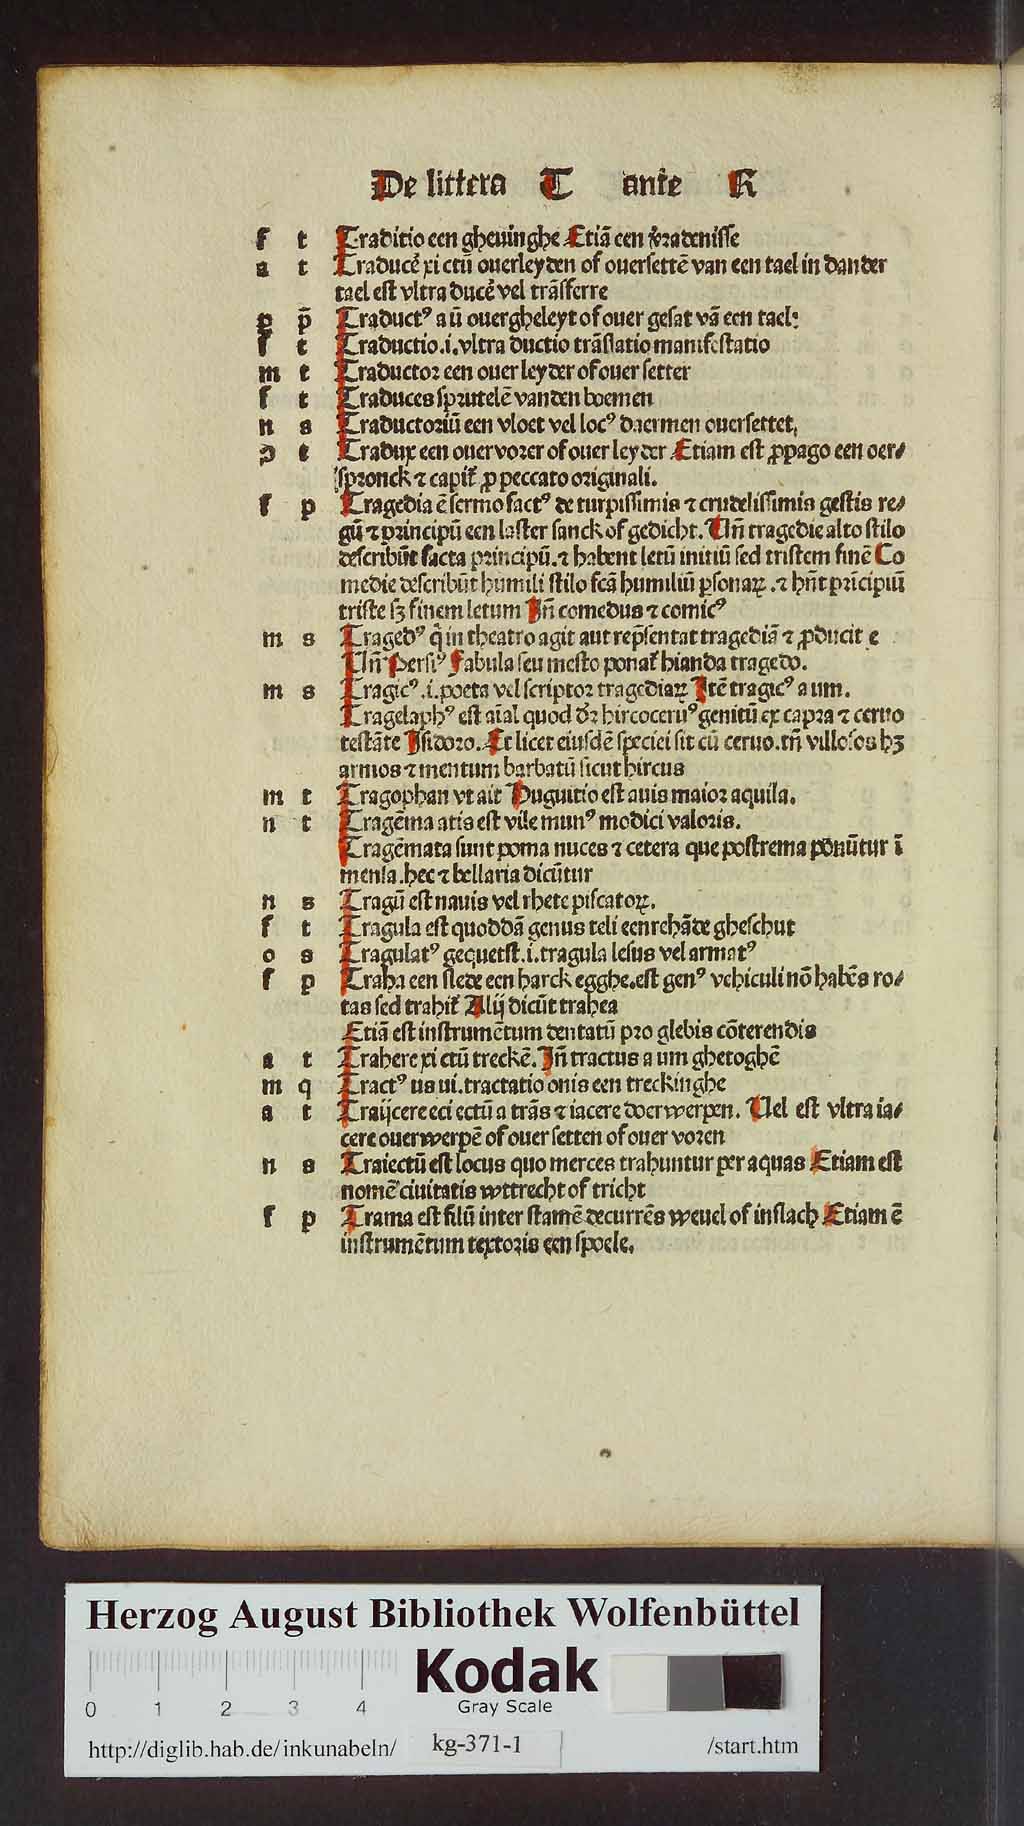 De littera T ante R
f t Traditio een gheuinghe Etiā een v̄radenisse
a t Traducē xi ctū ouerleyden of ouersettē van een tael in dander
tael est vltra ducē vel trāsferre
p p̄ Traductꝰ a ū ouergheleyt of ouer gesat vā een tael:
f t Traductio.i.vltra ductio trāslatio manifestatio
m t Traductor een ouer leyder of ouer setter
f t Traduces sprutelē van den boemen
n s Traductoriū een vloet vel locꝰ daermen ouersettet.
ꝯ t Tradux een ouer vorer of ouer leyder Etiam est ꝓpago een oer⸗
spronck ⁊ capit̄ ꝓ peccato originali.
f p Tragedia ē sermo factꝰ de turpissimis ⁊ crudelissimis gestis re⸗
gū ⁊ principū een laster sanck of gedicht. Un̄ tragedie alto stilo
describūt facta principū.⁊ habent letū initiū sed tristem finē Co
medie describūt humili stilo fcā humiliū ꝑsonaꝝ.⁊ hn̄t prīcipiū
triste sꝫ finem letum In̄ comedus ⁊ comicꝰ
m s Tragedꝰ q̇ in theatro agit aut rep̄sentat tragediā ⁊ ꝓducit e
Un̄ Persiꝰ Fabula seu mesto ponat̄ hianda tragedo.
m s Tragicꝰ.i.poeta vel scriptor tragediaꝝ Itē tragicꝰ a um.
Tragelaphꝰ est aīal quod dr̄ hircoceruꝰ genitū ex capra ⁊ ceruo
testāte Isidoro. Et licet eiusdē speciei sit cū ceruo.tn̄ villosos hꝫ
armos ⁊ mentum barbatū sicut hircus
m t Tragophan vt ait Huguitio est auis maior aquila.
n t Tragēma atis est vile munꝰ modici valoris.
Tragēmata sunt poma nuces ⁊ cetera que postrema ponūtur ī
mensa.hec ⁊ bellaria dicūtur
n s Tragū est nauis vel rhete piscatoꝝ.
f t Tragula est quoddā genus teli eenrehāde gheschut
o s Tragulatꝰ gequetst.i.tragula lesus vel armatꝰ
f p Traha een slede een harck egghe.est genꝰ vehiculi nō habēs ro⸗
tas sed trahit̄ Alij dicūt trahea
Etiā est instrumētum dentatū pro glebis cōterendis
a t Trahere xi ctū treckē. In̄ tractus a um ghetoghē
m q Tractꝰ us ui.tractatio onis een treckinghe
a t Traijcere eci ectū a trās ⁊ iacere doerwerpen. Uel est vltra ia⸗
cere ouerwerpē of ouer setten of ouer voren
n s Traiectū est locus quo merces trahuntur per aquas Etiam est
nomē ciuitatis wttrecht of tricht
f p Trama est filū inter stamē decurrēs weuel of inslach Etiam ē
instrumētum textoris een spoele.
Herzog August Bibliothek Wolfenbüttel
Kodak
Gray Scale
0 1 2 3 4
http://diglib.hab.de/inkunabeln/ kg-371-1 /start.htm